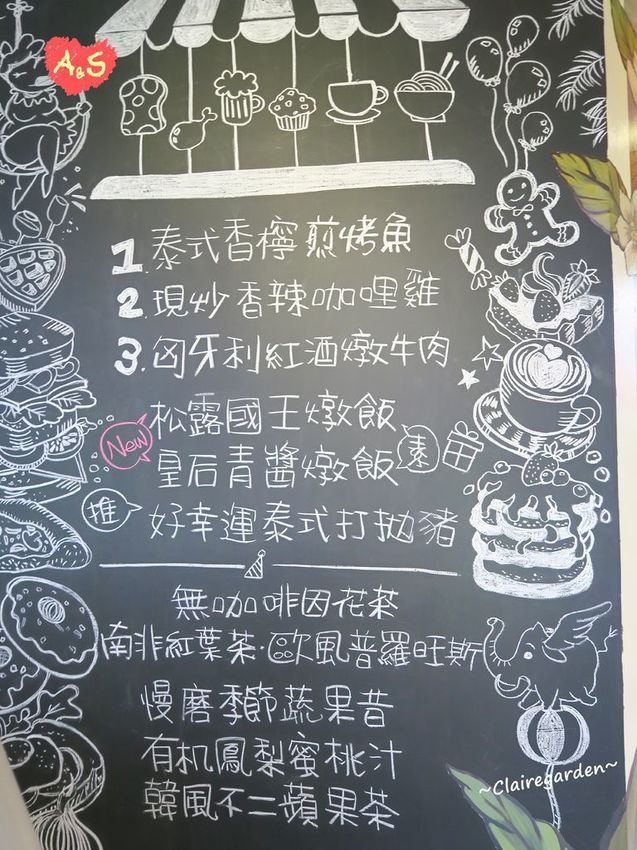 A&S
1. 泰式香檸煎烤魚
2. 現炒香辣咖哩雞
3. 匈牙利紅酒燉牛肉
New
松露國王燉飯
皇后青醬燉飯
素
推
好幸運泰式打拋豬
無咖啡因花茶
南非紅葉茶·歐風普羅旺斯
慢磨季節蔬果昔
有机鳳梨蜜桃汁
韓風不二蘋果茶
~Clairegarden~